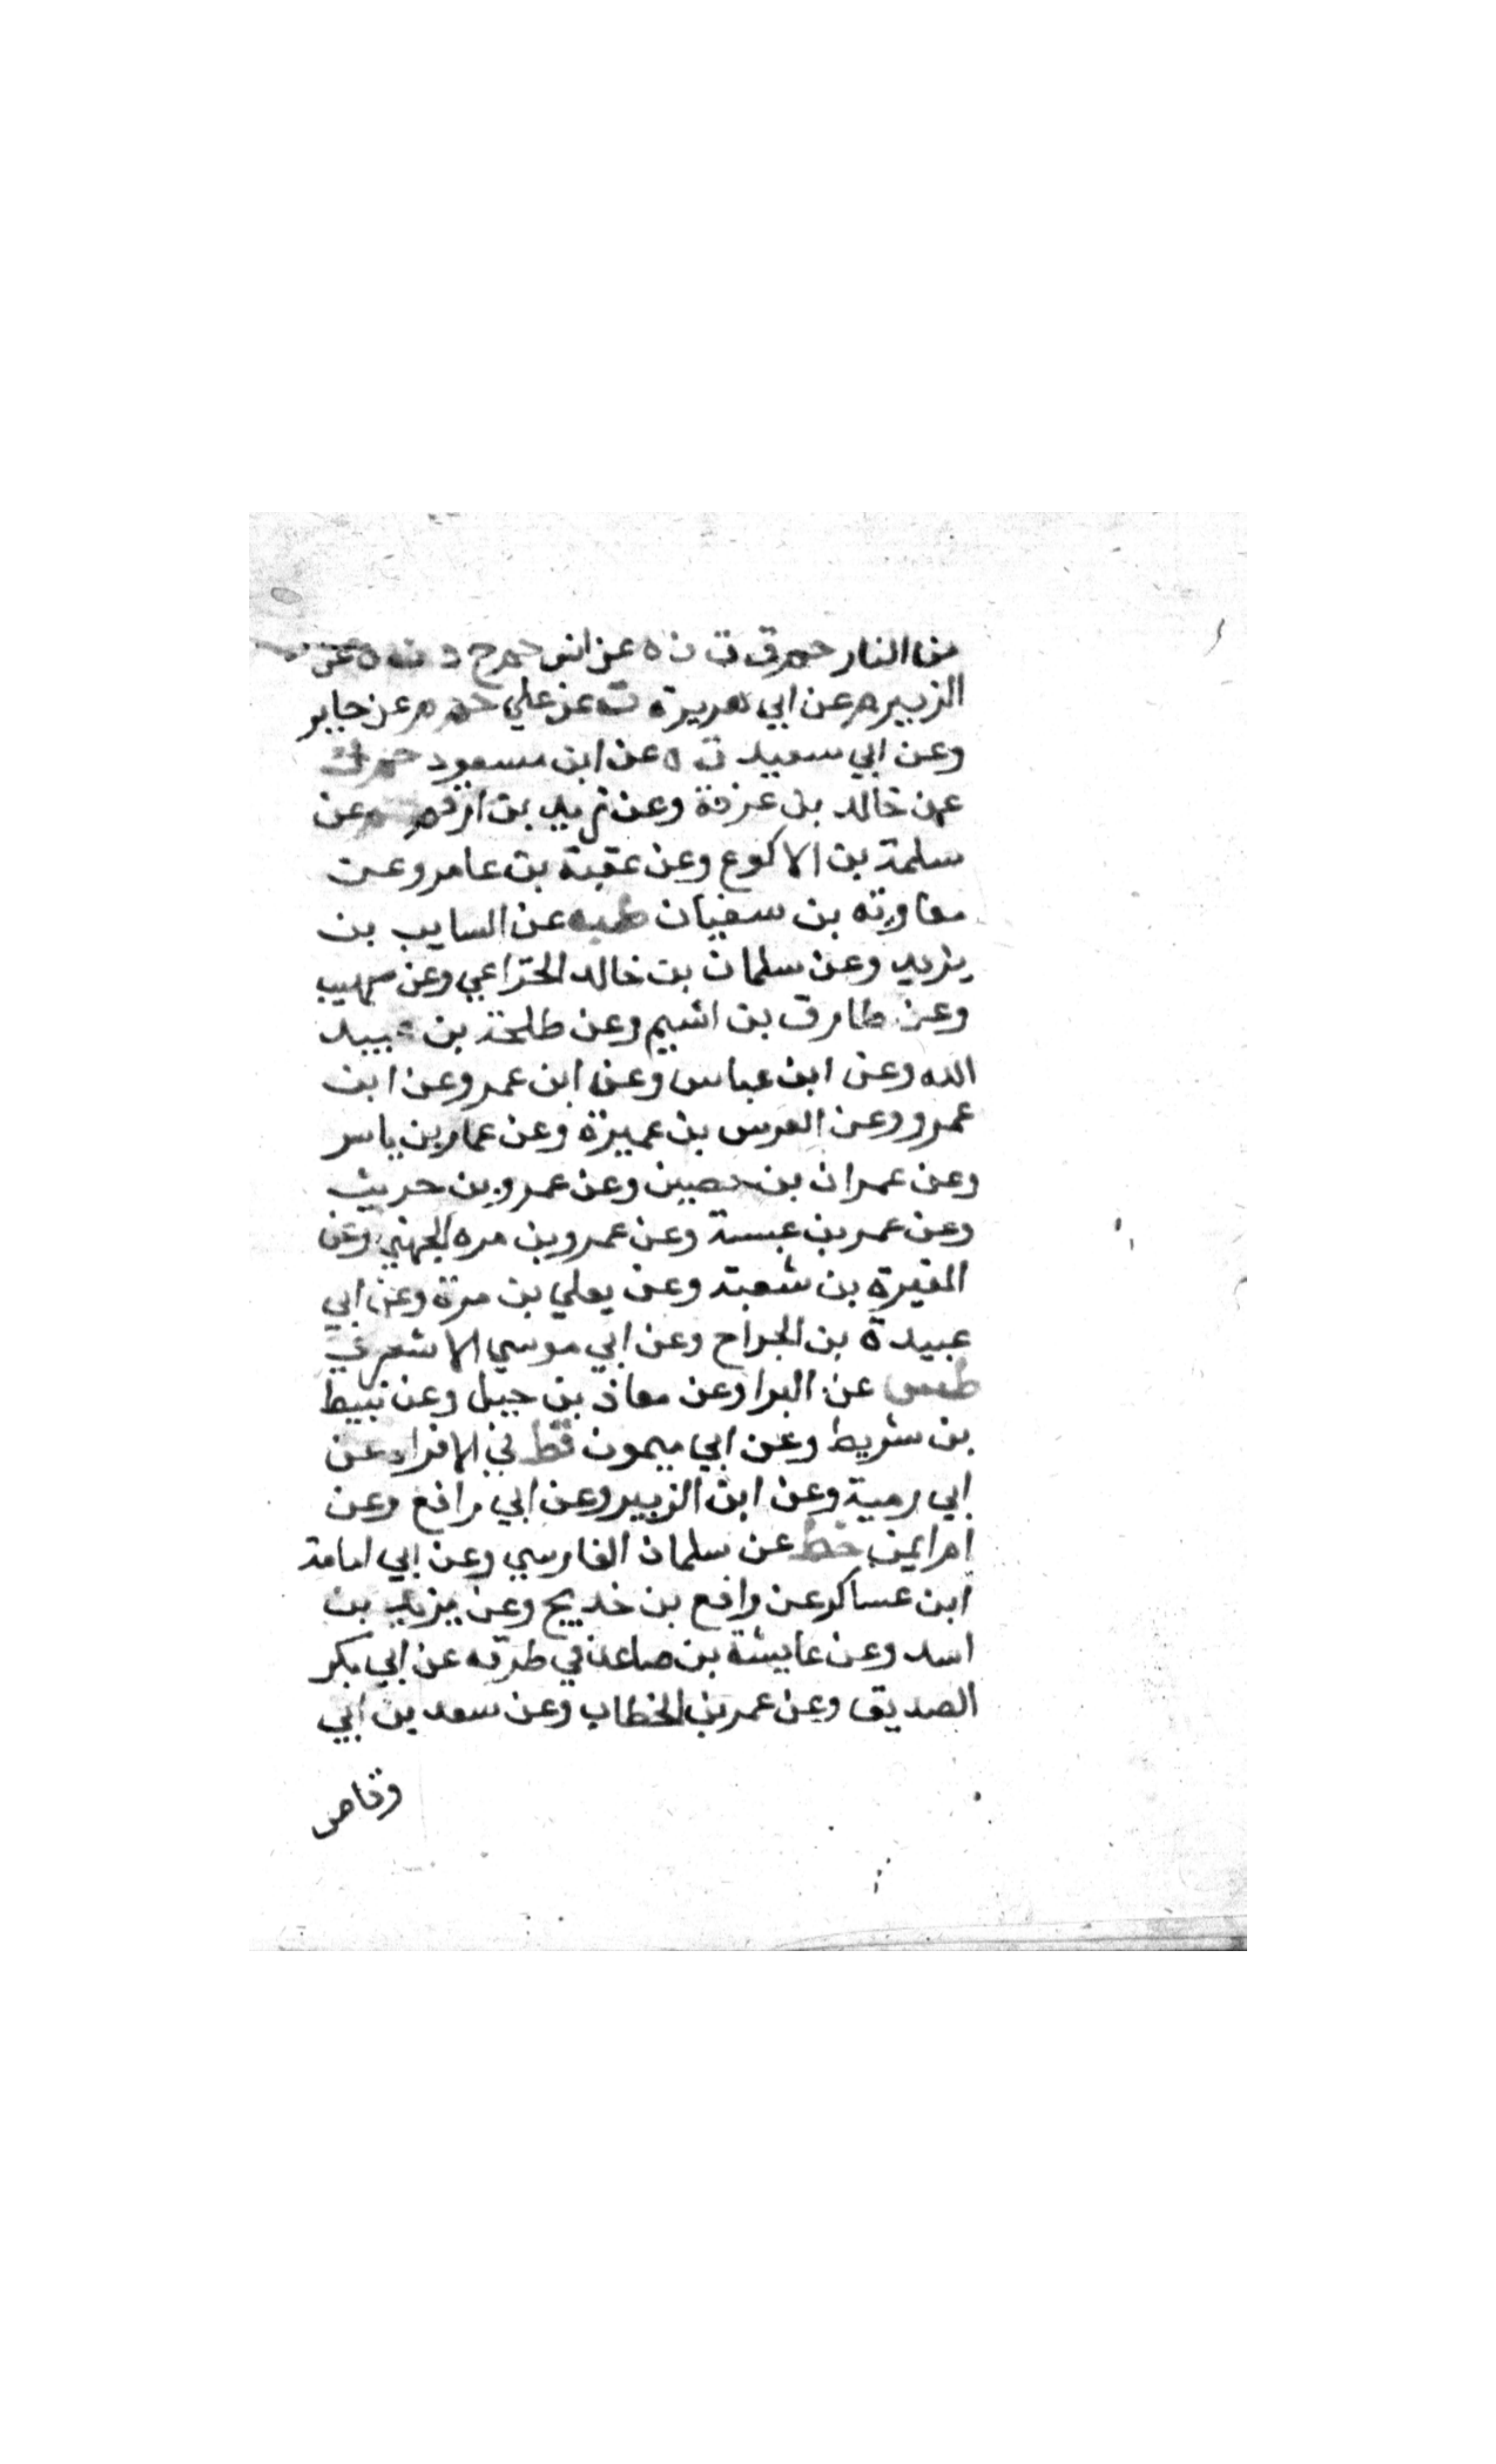 من النار حم ق ت ن ه عن انس حم خ د ن ه عن
الزبير م عن ابي هريرة ت عن علي حم م عن جابر
وعن ابي سعيد ت ه عن ابن مسعود حم ك
عن خالد بن عرفة وعن زيد بن ارقم وعن
سلمة بن الاكوع وعن عقبة بن عامر وعن
معاوية بن سفيان طب عن السايب بن
يزيد وعن سلمان بن خالد الخزاعي وعن صهيب
وعن طارق بن اشيم وعن طلحة بن عبيد
الله وعن ابن عباس وعن ابن عمر وعن ابن
عمرو وعن العرس بن عميرة وعن عمار بن ياسر
وعن عمران بن حصين وعن عمرو بن حريث
وعن عمر بن عبسة وعن عمرو بن مره الجهني وعن
المغيرة بن شعبة وعن يعلي بن مرة وعن ابي
عبيدة بن الجراح وعن ابي موسي الاشعري
طس عن البرا وعن معاذ بن جبل وعن نبيط
بن شريط وعن ابي ميمون قط في الافراد عن
ابي رمية وعن ابن الزبير وعن ابي رافع وعن
ام ايمن خط عن سلمان الفارسي وعن ابي امامة
ابن عساكر عن رافع بن خديج وعن يزيد بن
اسد وعن عايشة بن صاعد في طرقه عن ابي بكر
الصديق وعن عمر بن الخطاب وعن سعد بن ابي
وقاص